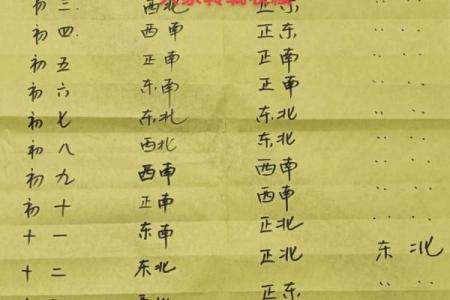 初三 西北 正东
初四 西南 正东 〃 〃
初五 正南 正南 〃 〃
初六 东南 正南 〃 〃
初七 东北 东北 〃 〃
初八 西北 东北 〃 〃
初九 西南 西南 〃 〃
初十 正南 西南 〃 〃
十一 东南 正北 〃 〃
十二 东北 正北 东北
正东 〃 〃